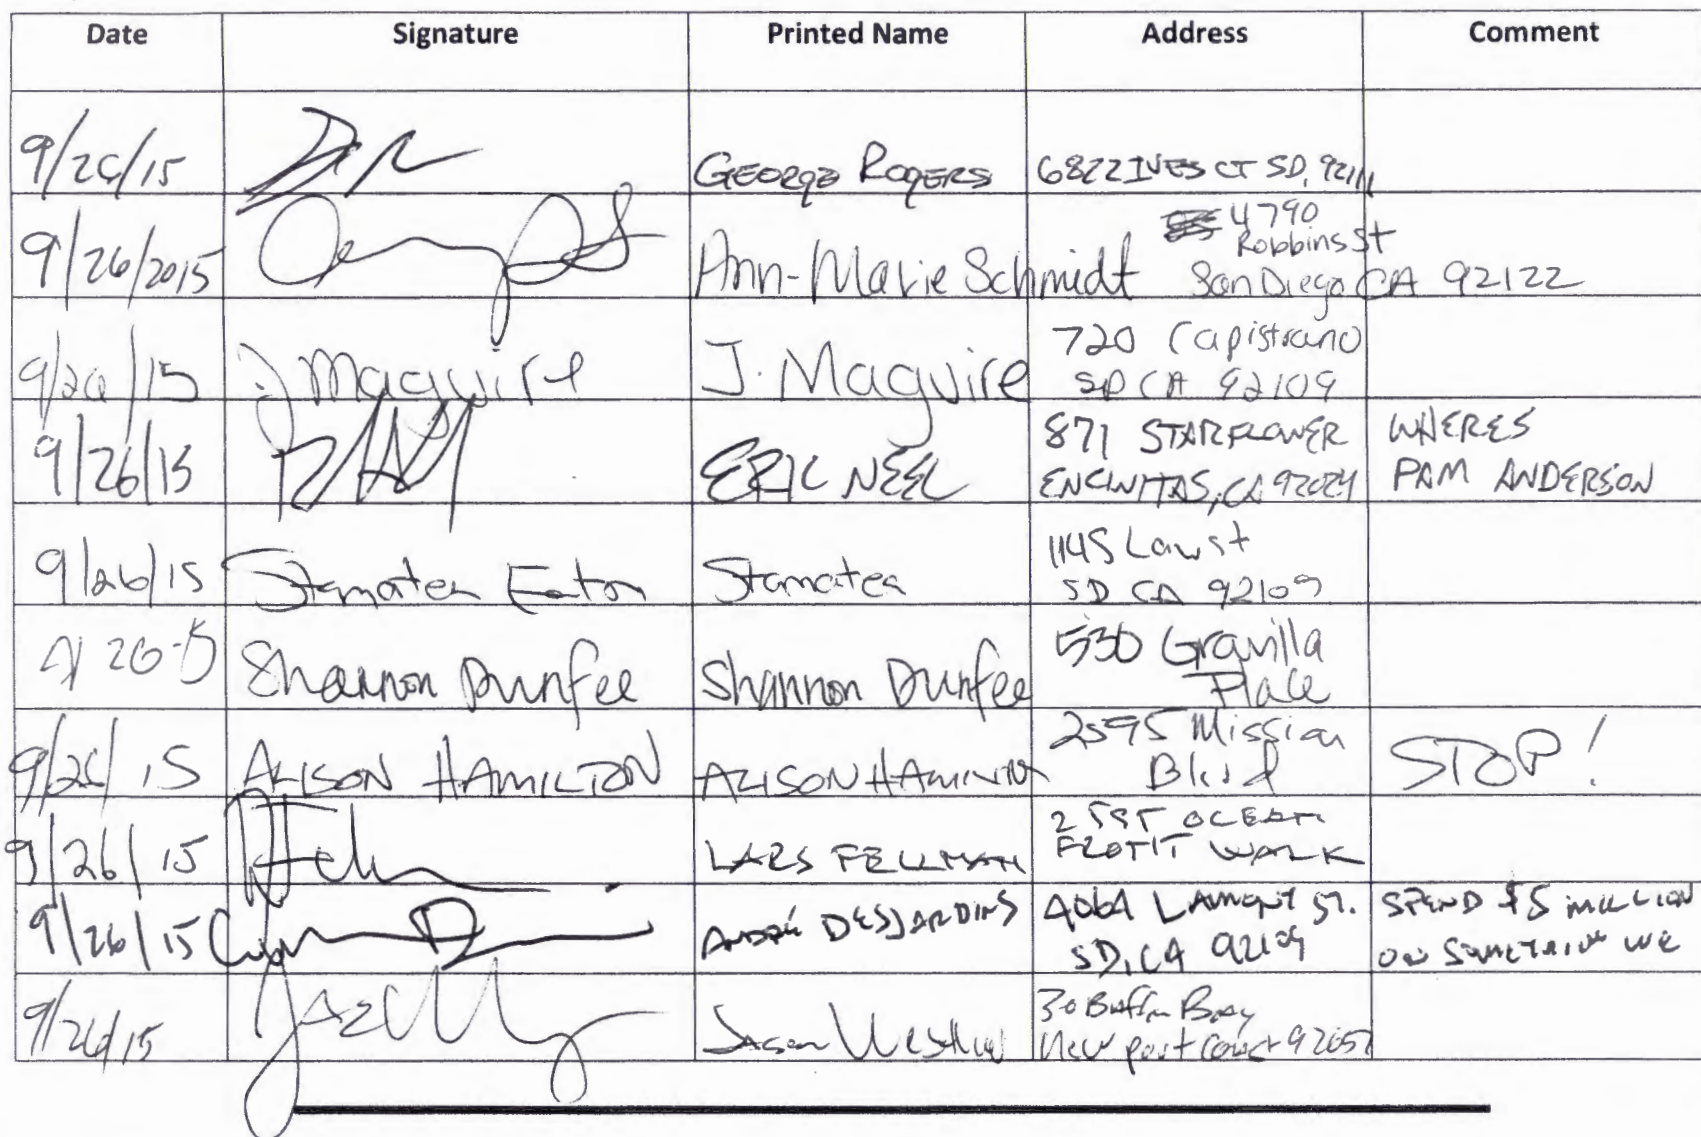 Date Signature Printed Name Address Comment
9/26/15 GEORGE ROGERS 6822 IVES CT SD, 92111
9/26/2015 Ann-Marie Schmidt 4790
Robbins St
San Diego CA 92122
9/26/15 J Maguire J. Maguire 720 Capistrano
SD CA 92109
9/26/15 ERIC NEEL 871 STARFLOWER
ENCINITAS, CA 92024
WHERES
PAM ANDERSON
9/26/15 Stamatea Eaton Stamatea 1145 Law st
SD CA 92109
9/26-15 Shannon Dunfee Shannon Dunfee 530 Gravilla
Place
9/26/15 ALISON HAMILTON ALISON HAMILTON 2595 Mission
Blvd
STOP!
9/26/15 LARS FELLMAN 2595 OCEAN
FRONT WALK
9/26/15 ANDRÉ DESJARDINS 4064 LAMONT ST.
SD, CA 92109
SPEND $5 MILLION
ON SOMETHING WE
9/26/15 Jason 30 Baffin Bay
Newport Coast 92657